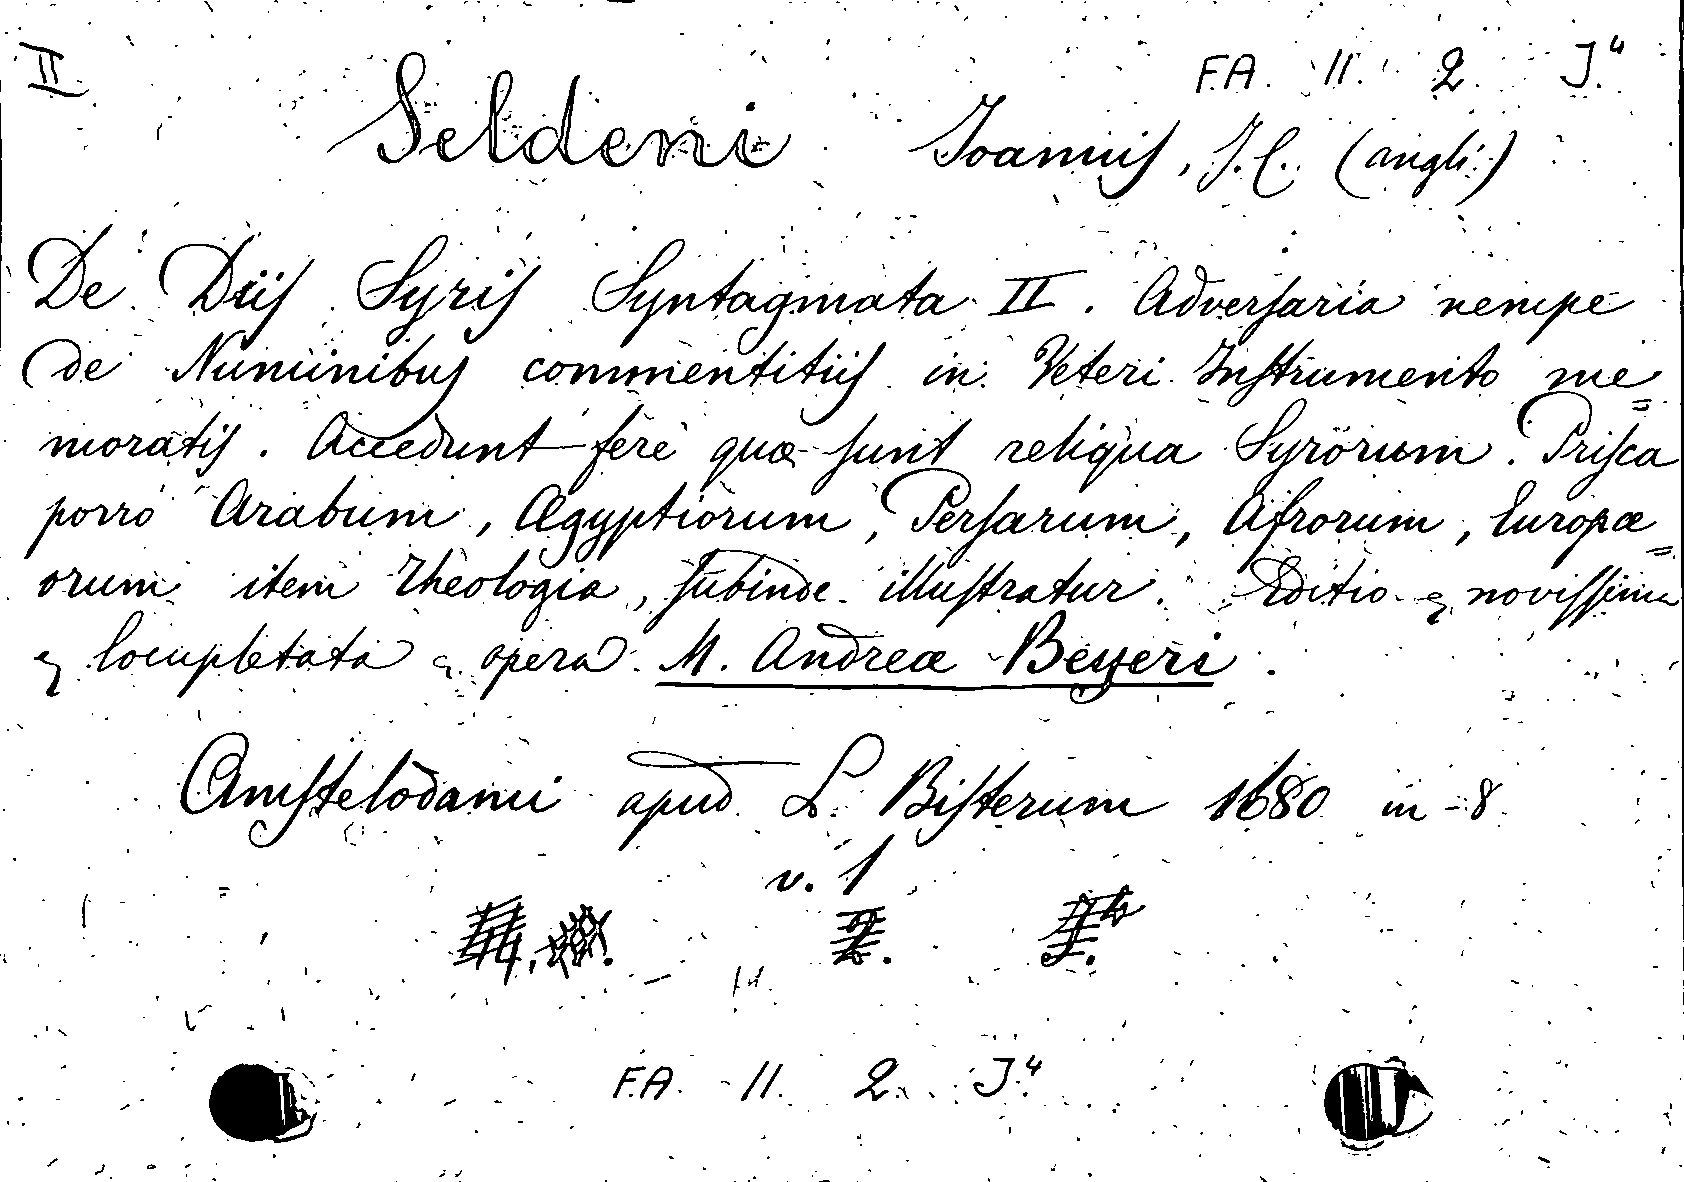 II. F.A. II. 2. J.4
Seldeni Joannis, J.C. (angli.)
De Diis Syris Syntagmata II. Adversaria nempe
de Numinibus commentitiis in Veteri Instrumento me=
moratis. Accedunt fere quæ sunt reliqua Syrorum. Prisca
porro Arabum, Ægyptiorum, Persarum, Afrorum, Europæ=
orum item Theologia, subinde illustratur. Editio novissima
locupletata opera M. Andreæ Beyeri.
Amstelodami apud L. Bisterum 1680 in-8
v. 1
F.A. II. 2. J.4